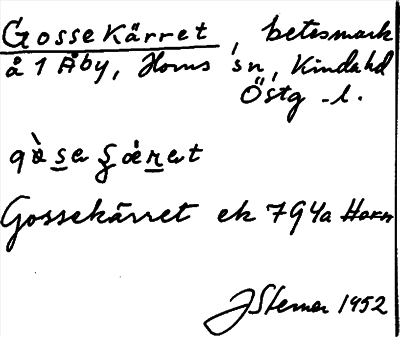 Gossekärret, betesmark
å 1 Åby, Horns sn, Kinda hd
Östg. l.
Gossekärret ek 794a Horn
JStemor 1952